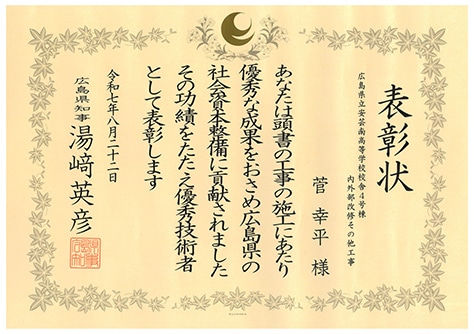 表彰状
広島県立安芸南高等学校校舎4号棟
内外部改修その他工事
菅 幸平 様
あなたは頭書の工事の施工にあたり
優秀な成果をおさめ広島県の
社会資本整備に貢献されました
その功績をたたえ優秀技術者
として表彰します
令和七年八月二十二日
広島県知事 湯﨑英彦